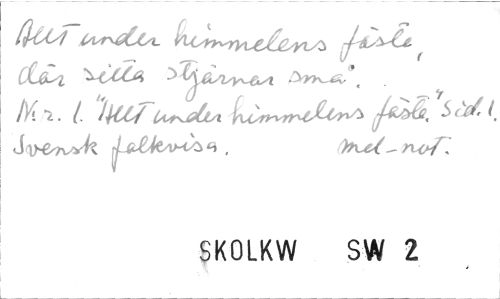 Allt under himmelens fäste,
där sitta stjärnor små.
N:r. 1. "Allt under himmelens fäste." Sid. 1.
Svensk folkvisa. mel-not.
SKOLKW SW 2